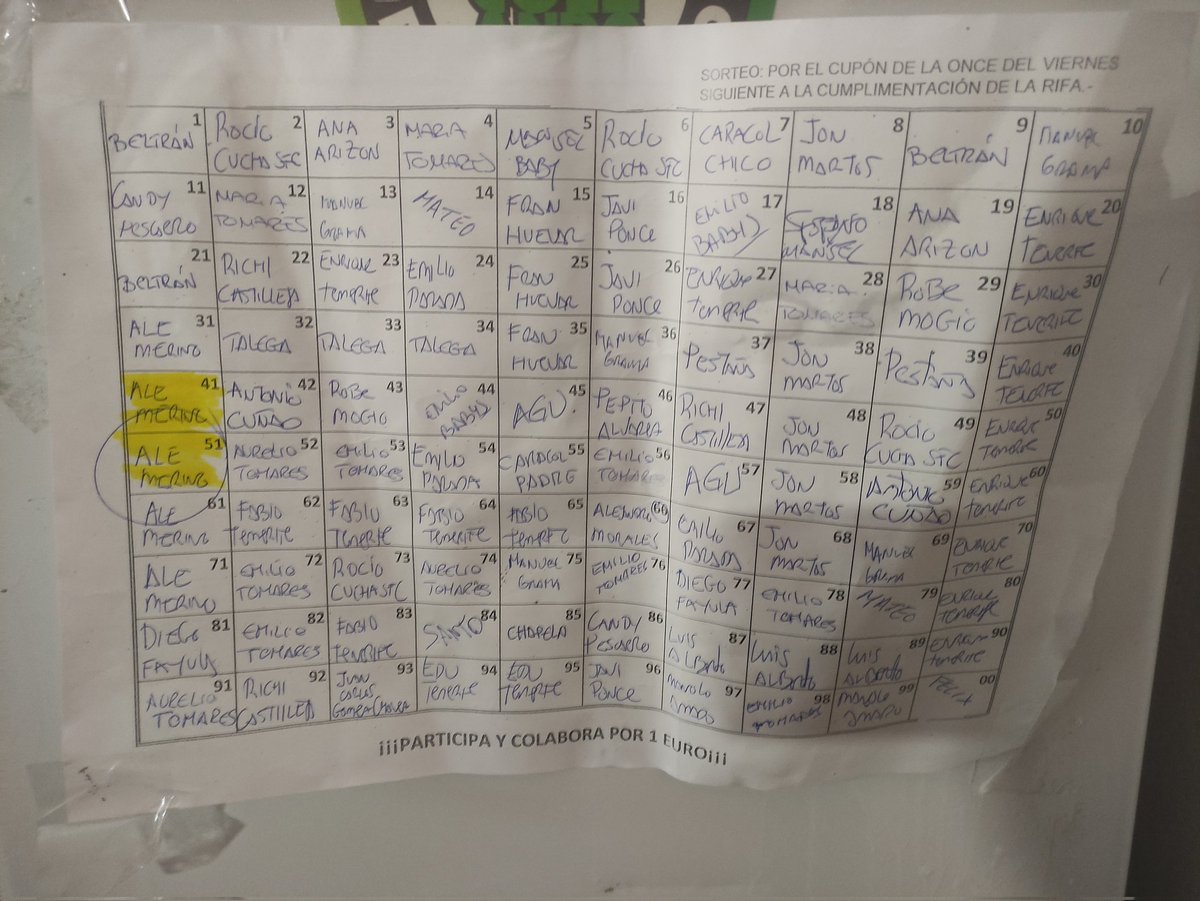 SORTEO: POR EL CUPÓN DE LA ONCE DEL VIERNES
SIGUIENTE A LA CUMPLIMENTACIÓN DE LA RIFA.-
1 BELTRÁN
2 ROCÍO CUCHA SFC
3 ANA ARIZON
4 MARIA TOMARES
5 BABY
6 ROCÍO CUCHA SFC
7 CARACOL CHICO
8 JON MARTOS
9 BELTRÁN
10 MANUEL GRAMA
11 CANDY PESCAERO
12 MARIA TOMARES
13 MANUEL GRAMA
14 MATEO
15 FRAN HUEVAR
16 JAVI PONCE
17 EMILIO BABYS
18
19 ANA ARIZON
20 ENRIQUE TENERIFE
21 BELTRÁN
22 RICHI CASTILLEJA
23 ENRIQUE TENERIFE
24 EMILIO PARADA
25 FRAN HUEVAR
26 JAVI PONCE
27 ENRIQUE TENERIFE
28 MARIA TOMARES
29 ROBE MOGIO
30 ENRIQUE TENERIFE
31 ALE MERINO
32 TALEGA
33 TALEGA
34 TALEGA
35 FRAN HUEVAR
36 MANUEL GRAMA
37 PESTAÑA
38 JON MARTOS
39 PESTAÑA
40 ENRIQUE TENERIFE
41 ALE MERINO
42 ANTONIO CUÑAO
43 ROBE MOGIO
44 EMILIO BABYS
45 AGU.
46 PEPITO
47 RICHI CASTILLEJA
48 JON MARTOS
49 ROCÍO CUCHA SFC
50 ENRIQUE TENERIFE
51 ALE MERINO
52 AURELIO TOMARES
53 EMILIO TOMARES
54 EMILIO PARADA
55 CARACOL PADRE
56 EMILIO TOMARES
57 AGU
58 JON MARTOS
59 ANTONIO CUÑAO
60 ENRIQUE TENERIFE
61 ALE MERINO
62 FABIO TENERIFE
63 FABIO TENERIFE
64 FABIO TENERIFE
65 FABIO TENERIFE
66 ALEJANDRO MORALES
67 EMILIO PARADA
68 JON MARTOS
69 MANUEL GRAMA
70 ENRIQUE TENERIFE
71 ALE MERINO
72 EMILIO TOMARES
73 ROCÍO CUCHA SFC
74 AURELIO TOMARES
75 MANUEL GRAMA
76 EMILIO TOMARES
77 DIEGO FAYULA
78 EMILIO TOMARES
79 MATEO
80 ENRIQUE TENERIFE
81 DIEGO FAYULA
82 EMILIO TOMARES
83 FABIO TENERIFE
84 SANTO
85 CHAPELA
86 CANDY PESCAERO
87 LUIS ALBERTO
88 LUIS ALBERTO
89 LUIS ALBERTO
90 ENRIQUE TENERIFE
91 AURELIO TOMARES
92 RICHI CASTILLEJA
93 JUAN CARLOS
94 EDU TENERIFE
95 EDU TENERIFE
96 JAVI PONCE
97 MANOLO AMADO
98 EMILIO TOMARES
99 MANOLO AMADO
00
¡¡¡PARTICIPA Y COLABORA POR 1 EURO¡¡¡